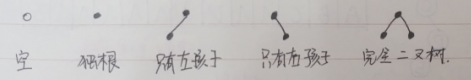 空 独根 只有左孩子 只有右孩子 完全二叉树.